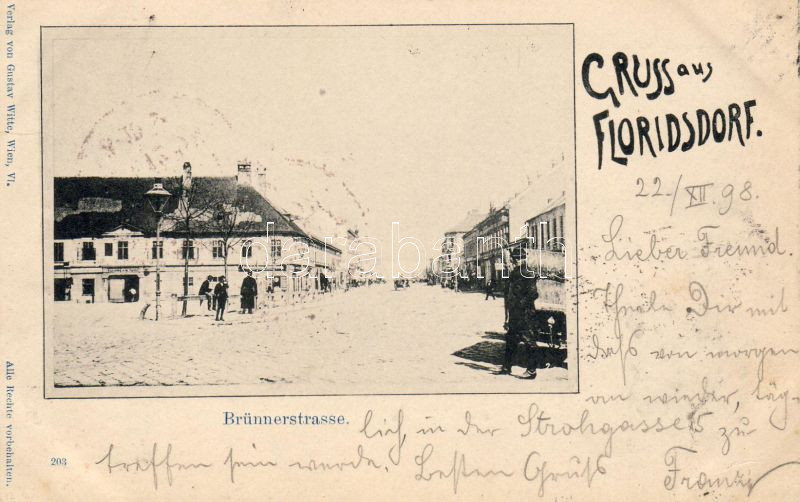 Verlag von Gustav Witte, Wien, VI.
Alle Rechte vorbehalten.
GRUSS aus
FLORIDSDORF.
22./XII 98.
Lieber Freund.
Theile Dir mit
dass von morgen
an wieder, täg-
Brünnerstrasse.
lich, in der Strohgasse 8 zu
203
treffen sein werde. Besten Gruss
Franz
darabanth